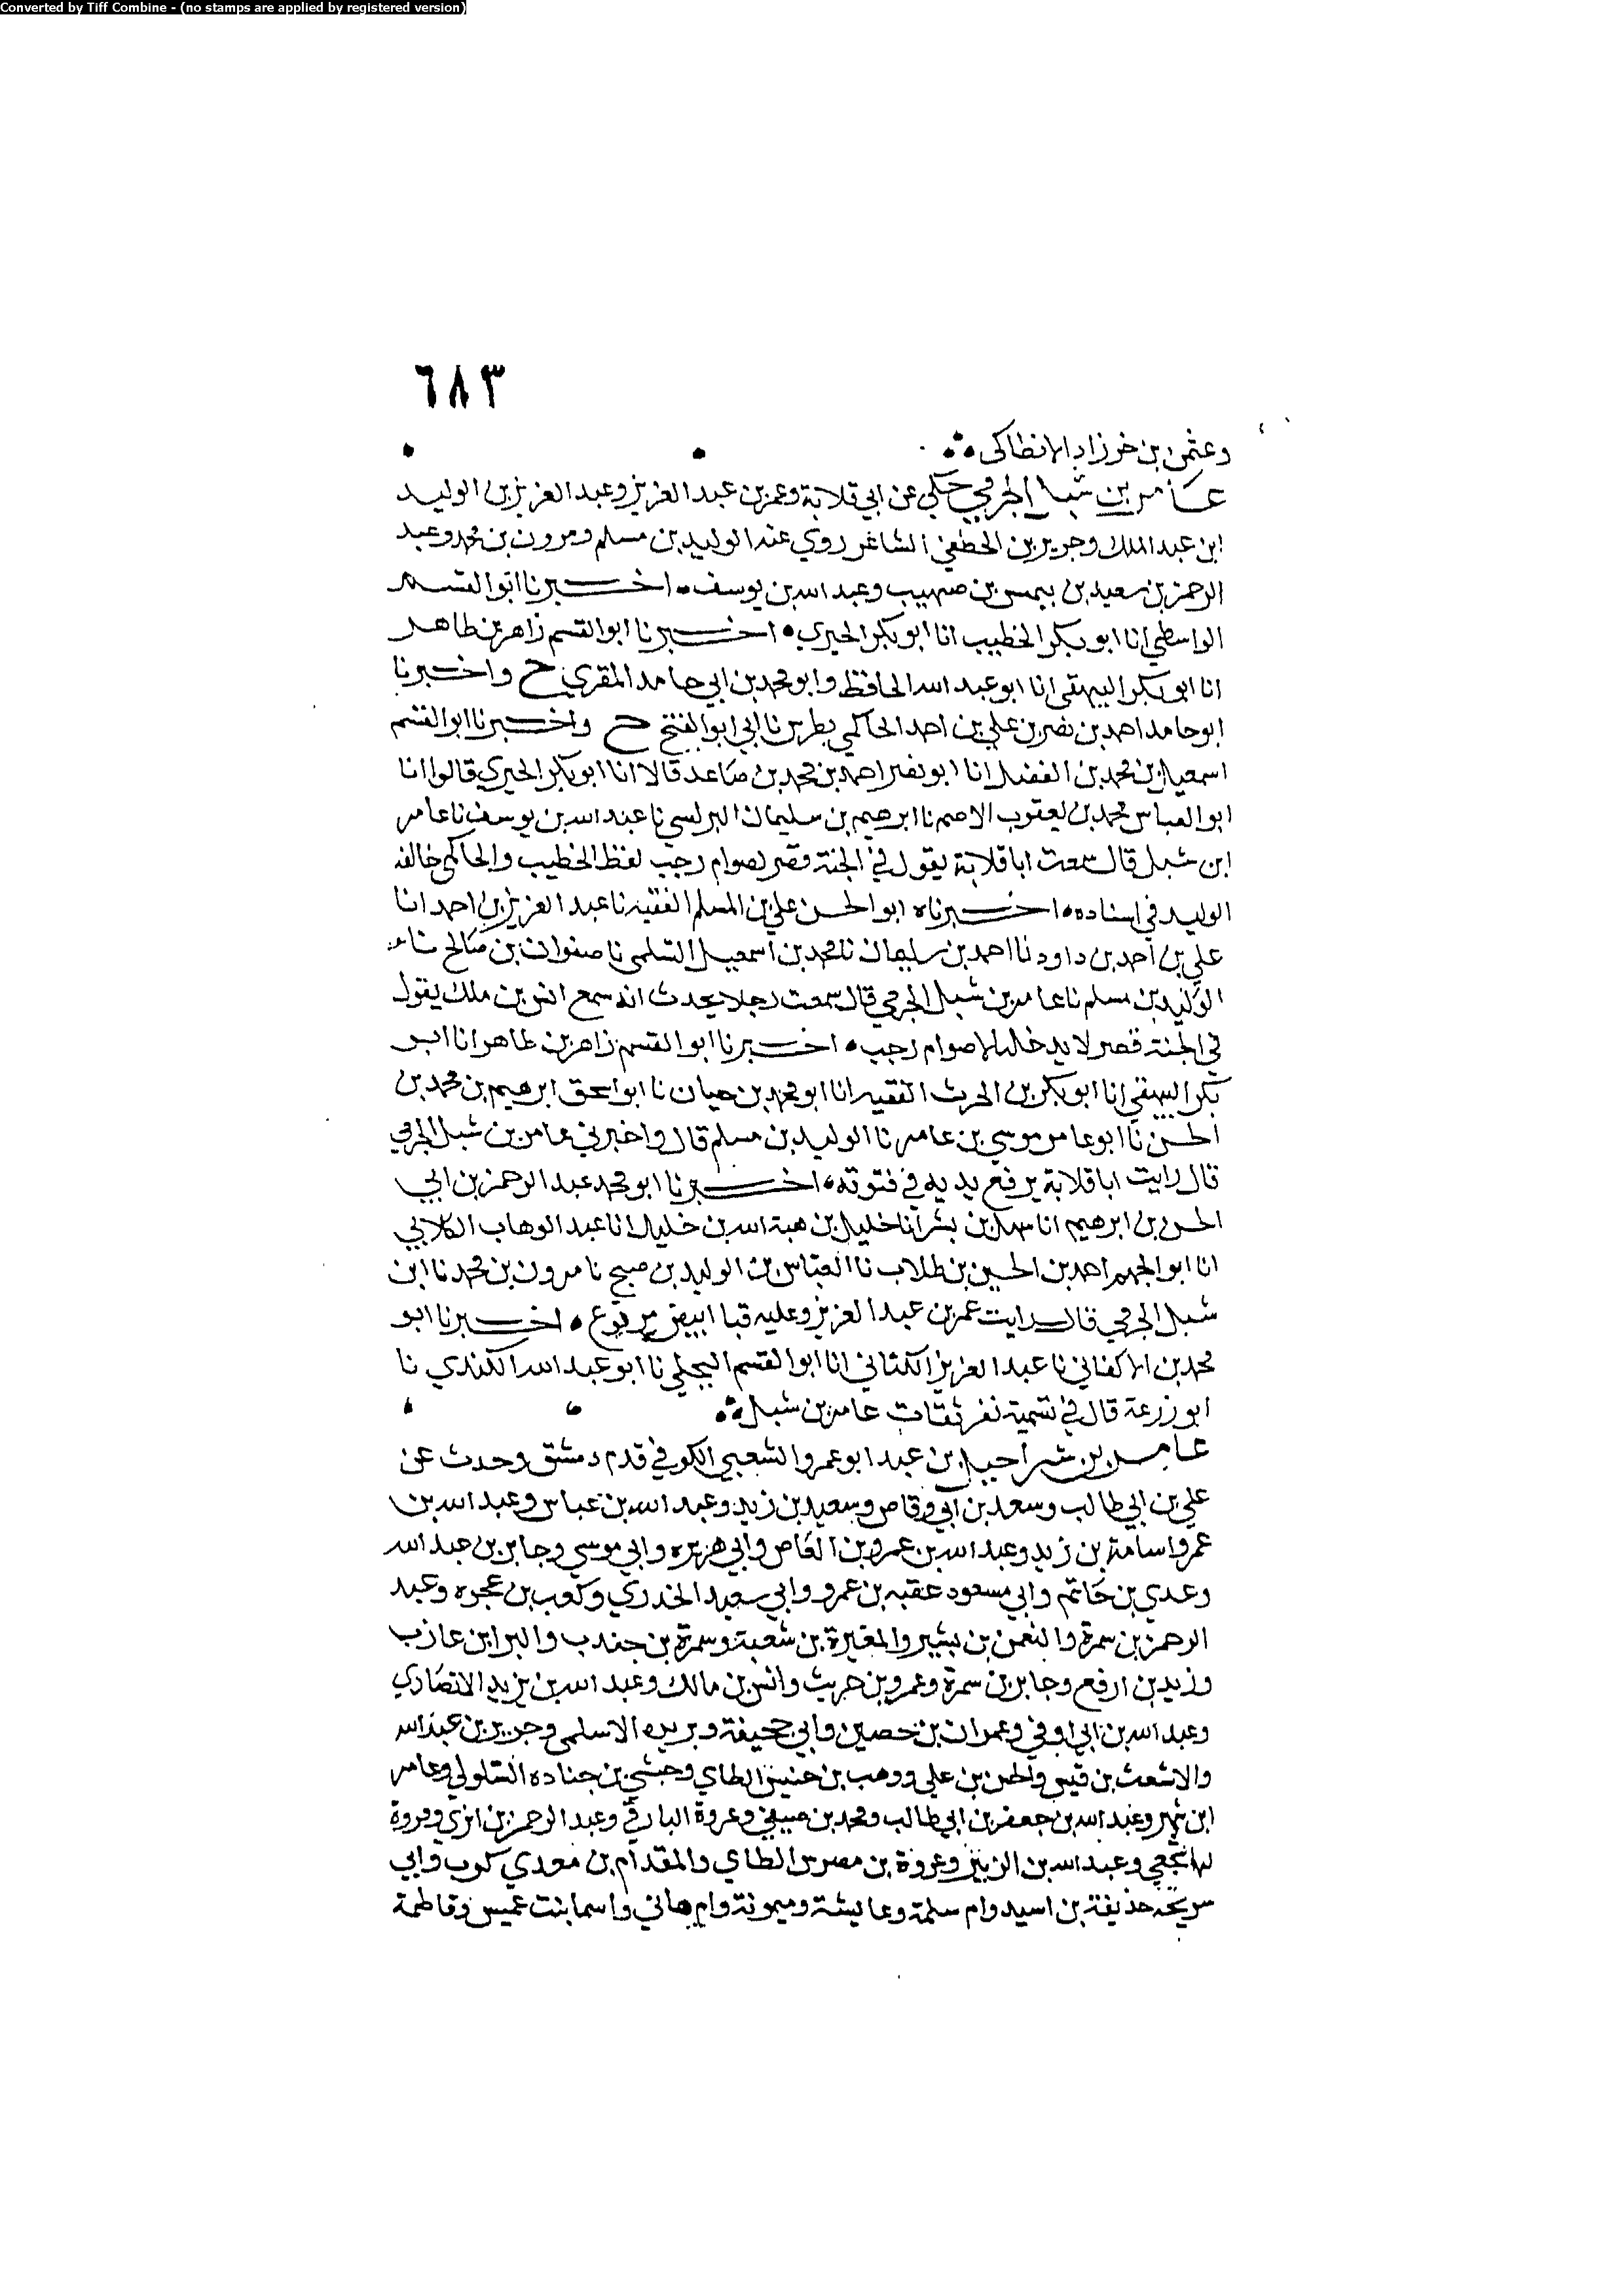 Converted by Tiff Combine - (no stamps are applied by registered version)
٦٨٣
وعثمن بن خرزاد الانطاكى
عامر بن شبل الجرمي حكى عن ابي قلابة وعمر بن عبد العزيز وعبد العزيز بن الوليد
ابن عبد الملك وجرير بن الخطفي الشاعر روي عنه الوليد بن مسلم ومرون بن محمد وعبد
الرحمن بن سعيد بن بيهس بن صهيب وعبد الله بن يوسف اخبرنا ابو القسم
الواسطي انا ابو بكر الخطيب انا ابو بكر الحيري اخبرنا ابو القسم زاهر بن طاهر
انا ابو بكر البيهقي انا ابو عبد الله الحافظ وابو محمد بن ابي حامد المقري ح واخبرنا
ابو حامد احمد بن نصر بن علي بن احمد الحاكمي بطوس نا ابي ابو الفتح ح واخبرنا ابو القسم
اسمعيل بن محمد بن الفضل انا ابو نصر احمد بن محمد بن صاعد قالا انا ابو بكر الحيري قالوا انا
ابو العباس محمد بن يعقوب الاصم نا ابرهيم بن سليمان البرلسي نا عبد الله بن يوسف نا عامر
ابن شبل قال سمعت ابا قلابة يقول في الجنة قصر لصوام رجب لفظ الخطيب والحاكمي خالفه
الوليد في اسناده اخبرناه ابو الحسن علي بن المسلم الفقيه نا عبد العزيز بن احمد انا
علي بن احمد بن داود نا احمد بن سليمان نا محمد بن اسمعيل السلمي نا صفوان بن صالح نا
الوليد بن مسلم نا عامر بن شبل الجرمي قال سمعت رجلا يحدث انه سمع انس بن ملك يقول
في الجنة قصر لا يدخله الا صوام رجب اخبرنا ابو القسم زاهر بن طاهر انا ابو
بكر البيهقي انا ابو بكر بن الحرث الفقيه انا ابو محمد بن حيان نا ابو اسحق ابرهيم بن محمد بن
الحسن نا ابو عامر موسي بن عامر نا الوليد بن مسلم قال واخبرني عامر بن شبل الجرمي
قال رايت ابا قلابة يرفع يديه في قنوته اخبرنا ابو محمد عبد الرحمن بن ابي
الحسن بن ابرهيم انا سهل بن بشر انا خليل بن هبة الله بن خليل انا عبد الوهاب الكلابي
انا ابو الجهم احمد بن الحسين بن طلاب نا العباس بن الوليد بن صبح نا مرون بن محمد نا ابن
شبل الجرمي قال رايت عمر بن عبد العزيز وعليه قبا ابيض مرقوع اخبرنا ابو
محمد بن الاكفاني نا عبد العزيز الكتاني انا ابو القسم البجلي نا ابو عبد الله الكندي نا
ابو زرعة قال في تسمية نفر ثقات عامر بن شبل
عامر بن شراحيل بن عبد ابو عمرو الشعبي الكوفي قدم دمشق وحدث عن
علي بن ابي طالب وسعد بن ابي وقاص وسعيد بن زيد وعبد الله بن عباس وعبد الله بن
عمر واسامة بن زيد وعبد الله بن عمرو بن العاص وابي هريره وابي موسي وجابر بن عبد الله
وعدي بن حاتم وابي مسعود عقبه بن عمرو وابي سعيد الخدري وكعب بن عجره وعبد
الرحمن بن سمرة والنعمن بن بشير والمغيرة بن شعبة وسمرة بن جندب والبرا بن عازب
وزيد بن ارقم وجابر بن سمرة وعمرو بن حريث وانس بن مالك وعبد الله بن يزيد الانصاري
وعبد الله بن ابي اوفي وعمران بن حصين وابي جحيفة وبريده الاسلمي وجرير بن عبد الله
والاشعث بن قيس والحسن بن علي ووهب بن خنبش الطاي وحبشي بن جناده السلولي وعامر
ابن شهر وعبد الله بن جعفر بن ابي طالب ومحمد بن صيفي وعروة البارقي وعبد الرحمن بن ابزي وفروة
وعبد الله بن الزبير وعروة بن مضرس الطاي والمقدام بن معدي كرب وابي
سريحه حذيفة بن اسيد وام سلمة وعايشة وميمونة وام هاني واسما بنت عميس وفاطمة